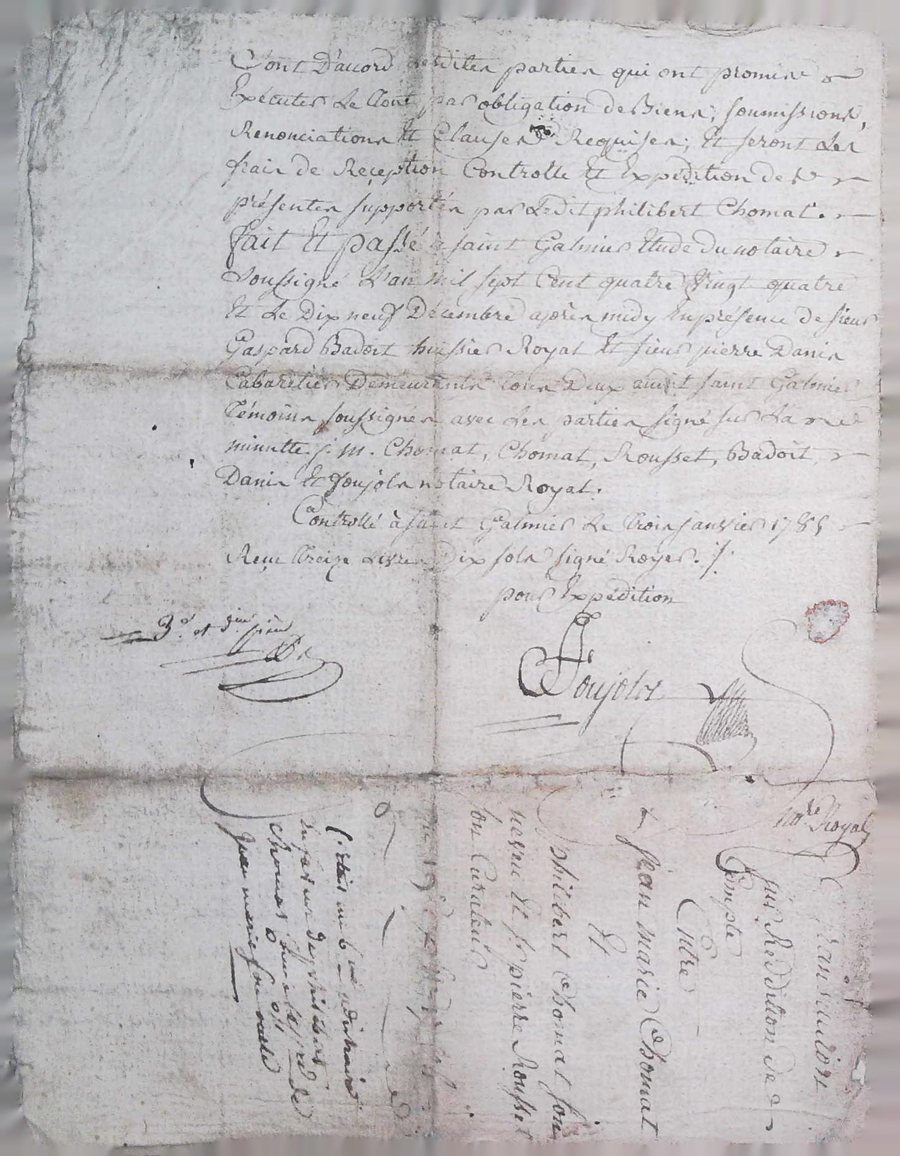 Sont D'accord Lesdites parties qui ont promise
Executer Le Tout, par obligation de Biens, soumissions,
Renonciations Et Clauses Requises, Et seront Les
frais de Reception Controlle Et Expedition des
présentes supportés par Ledit philibert Chomat.
fait Et passé à saint Galmier Etude du notaire
soussigné L'an mil sept Cent quatre Vingt quatre
Et Le Dix neuf Décembre après midy En présence de sieur
Gaspard Badoit huissier Royal Et sieur pierre Danis
Cabaretier Demeurants Tous Deux audit saint Galmier
Témoins soussignés avec Les parties signé sur La
minutte j. m. Chomat, Chomat, Rousset, Badoit,
Danis Et Joujols notaire Royal.
Controllé à saint Galmier Le Trois janvier 1785
Reçu Treize Livres Dix sols signé Royer./.
pour Expédition
3e et
Joujols
no.re Royal
Transaction
sur Reddition de
Compte
Entre
Sr jean marie Chomat
Et
philibert Chomat son
neveu Et Sr pierre Rousset
son Curateur
Du 19
en faveur de philibert
Chomat
jean marie son oncle